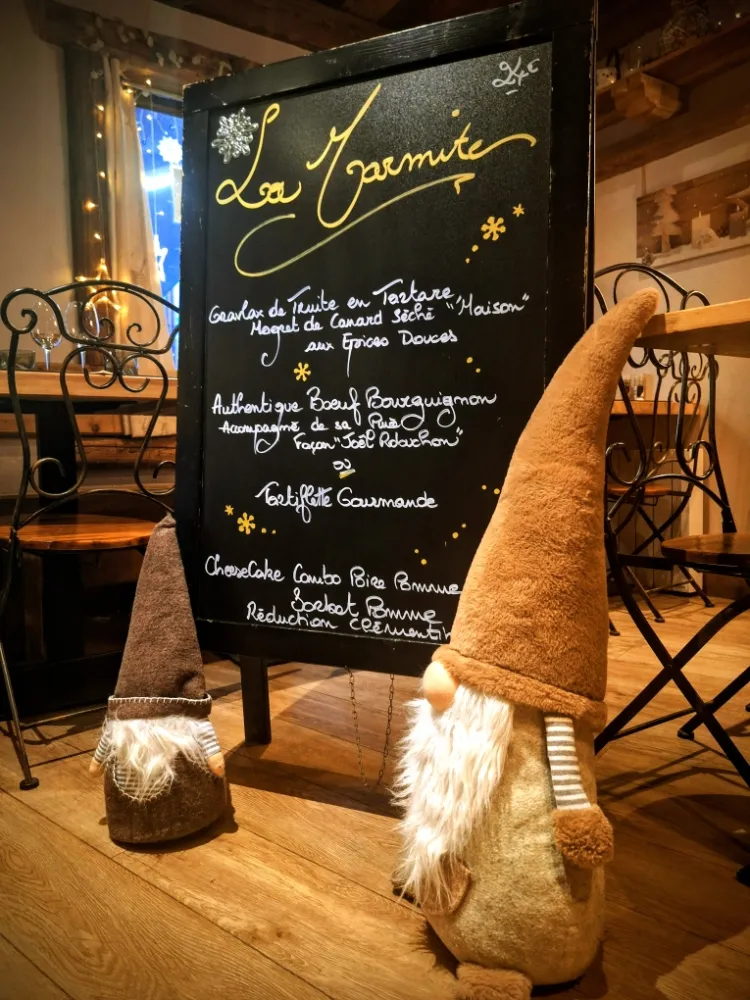 24€
La Marmite
Gravlax de Truite en Tartare
Magret de Canard Séché "Maison"
aux Epices Douces
Authentique Bœuf Bourguignon
Accompagné de sa Purée
Façon "Joël Robuchon"
ou
Tartiflette Gourmande
CheeseCake Combo Poire Pomme
Sorbet Pomme
Réduction Clémentin